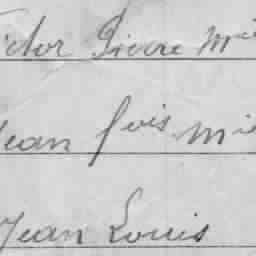 ictor Pierre Mie
Jean fois Mi
Jean Louis